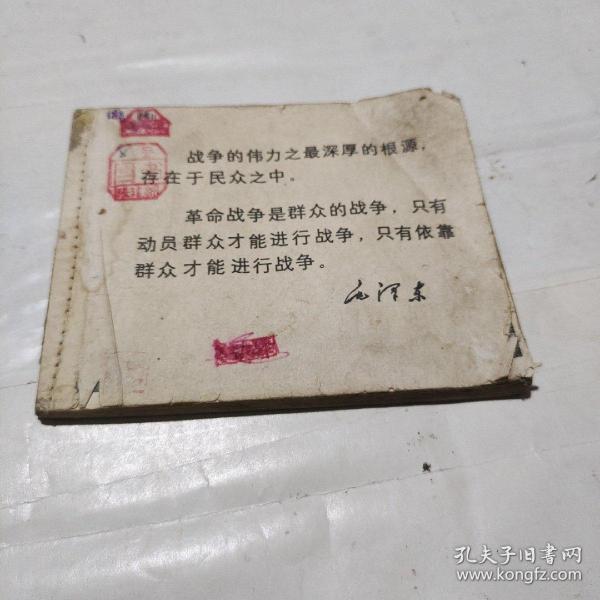 战争的伟力之最深厚的根源，
存在于民众之中。
革命战争是群众的战争，只有
动员群众才能进行战争，只有依靠
群众才能进行战争。
毛泽东
孔夫子旧書网
www.kongfz.com